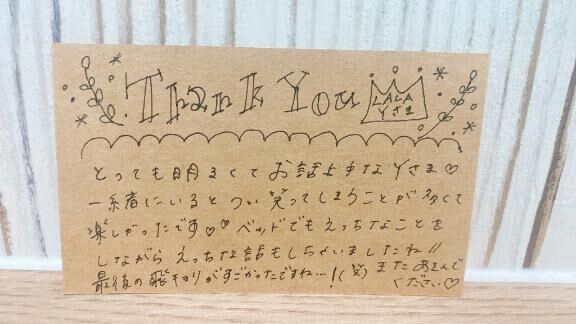 Thank You
LALA
Yさま
とっても明るくてお話上手なYさま♡
一緒にいるとつい笑ってしまうことが多くて
楽しかったです♡♡ベッドでもえっちなことを
しながらえっちな話もしちゃいましたね!!
最後の飛キョリがすごかったですね…!(笑)またあそんで
ください♡